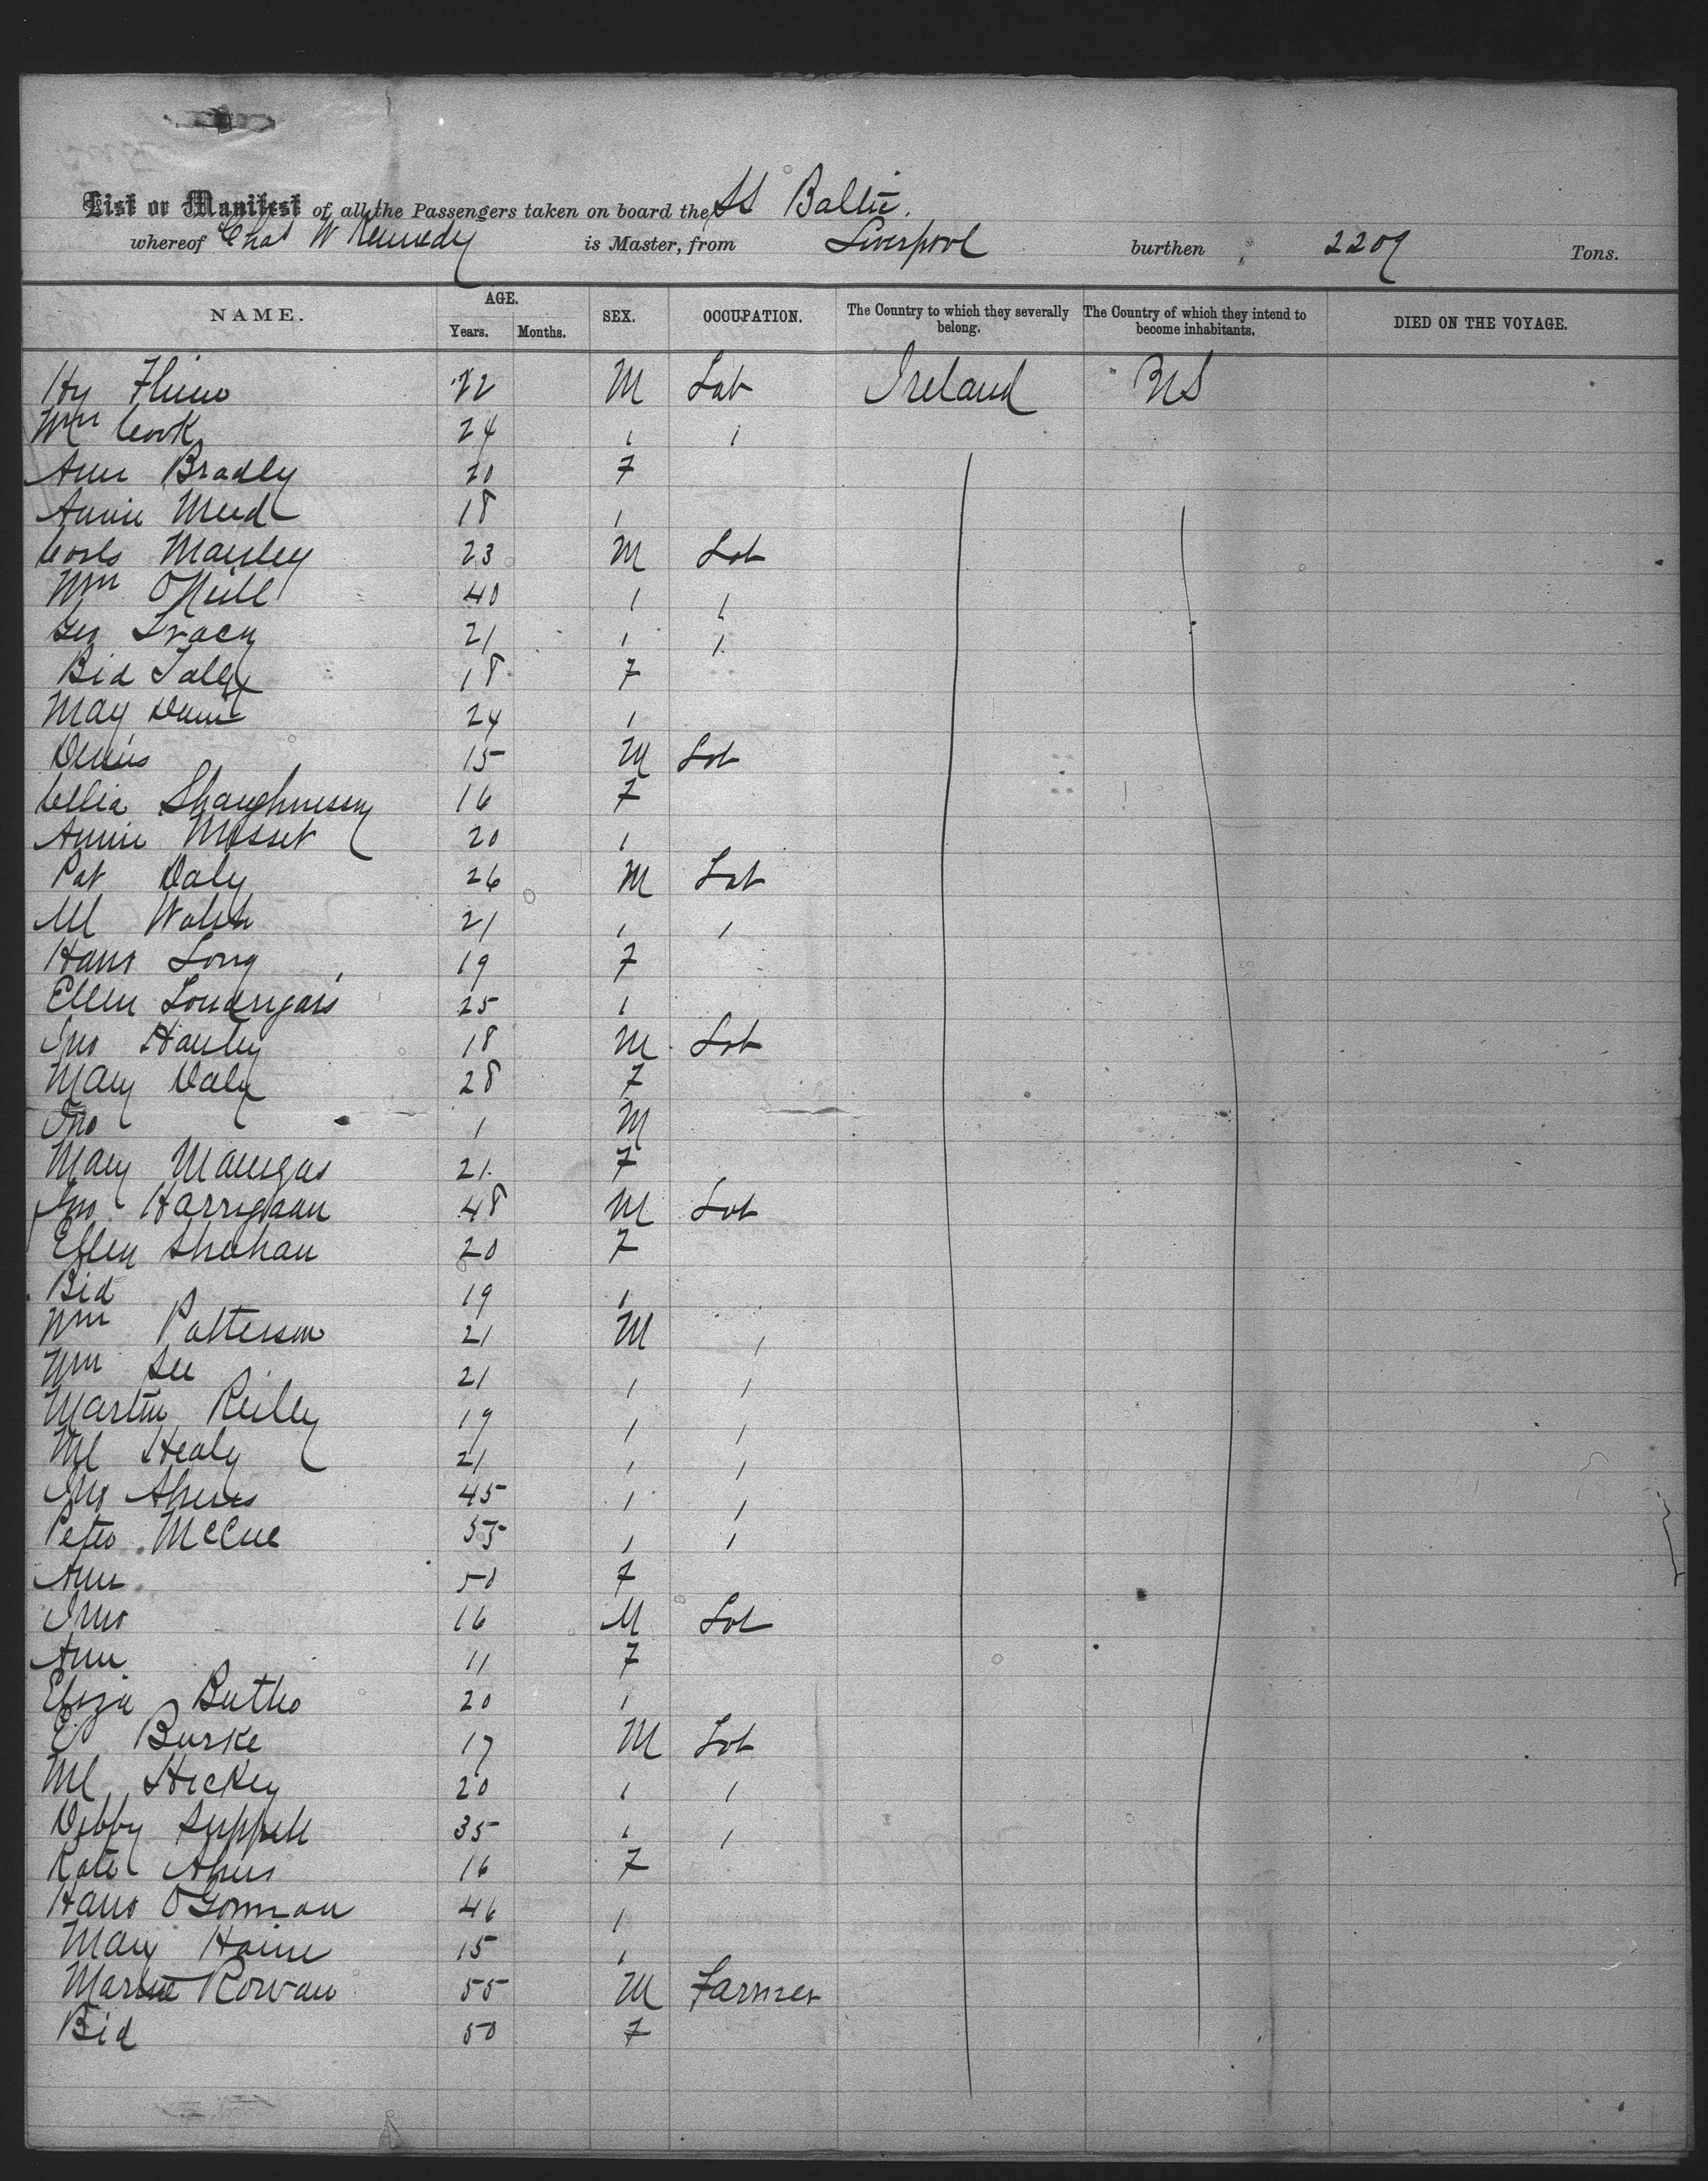 List or Manifest of all the Passengers taken on board the SS Baltic.
whereof Chas W Kennedy is Master, from Liverpool burthen 2209 Tons.
NAME. AGE. Years. Months. SEX. OCCUPATION. The Country to which they severally belong. The Country of which they intend to become inhabitants. DIED ON THE VOYAGE.
Hy 22 M Lab Ireland US
Wm Cook 24 " "
Ann Bradly 20 F
Annie Mead 18 "
Manley 23 M Lab
Wm ONeill 40 " "
Geo Tracy 21 " "
Bid Tally 18 F
May 24 "
Dennis 15 M Lab
Cellia Shaughnessy 16 F
Annie 20 "
Pat Daly 26 M Lab
Ml Walsh 21 " "
Hano Long 19 F
Ellen Londrigan 25 "
Jno Hanley 18 M Lab
Mary Daly 28 F
Jno 1 M
Mary 21 F
Jno Harrigaan 48 M Lab
Ellen Shahan 20 F
Bid 19 "
Wm Patterson 21 M "
Wm Lee 21 " "
Martin Reilly 19 " "
Ml Healy 21 " "
Jno 45 " "
Peter McCue 55 " "
Ann 50 F
Jno 16 M Lab
Ann 11 F
Eliza Butler 20 "
E Burke 17 M Lab
Ml Hickey 20 " "
Debby 35 " "
Kate 16 F
Hano OGorman 46 "
Mary 15 "
Martin Rowan 55 M Farmer
Bid 50 F